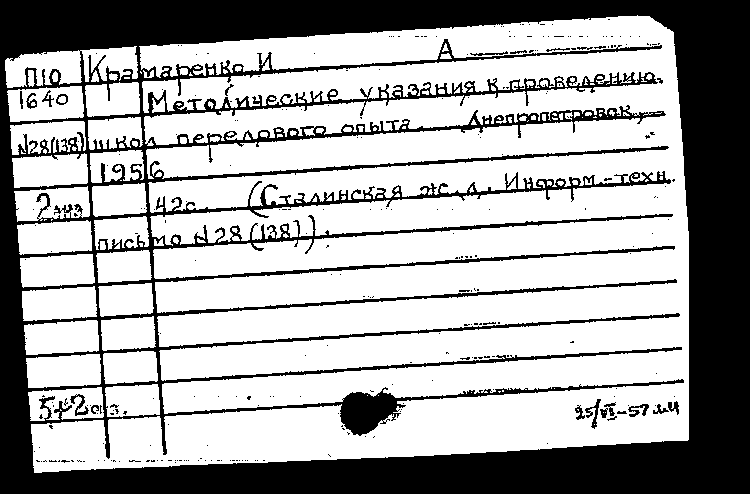 П10 Крамаренко, И А
1640 Методические указания к проведению
N28(138) школ передового опыта. Днепропетровск,
1956
2 экз 42с. (Сталинская ж.д. Информ.-техн.
письмо N28 (138)).
5+2 экз.
25/VI-57